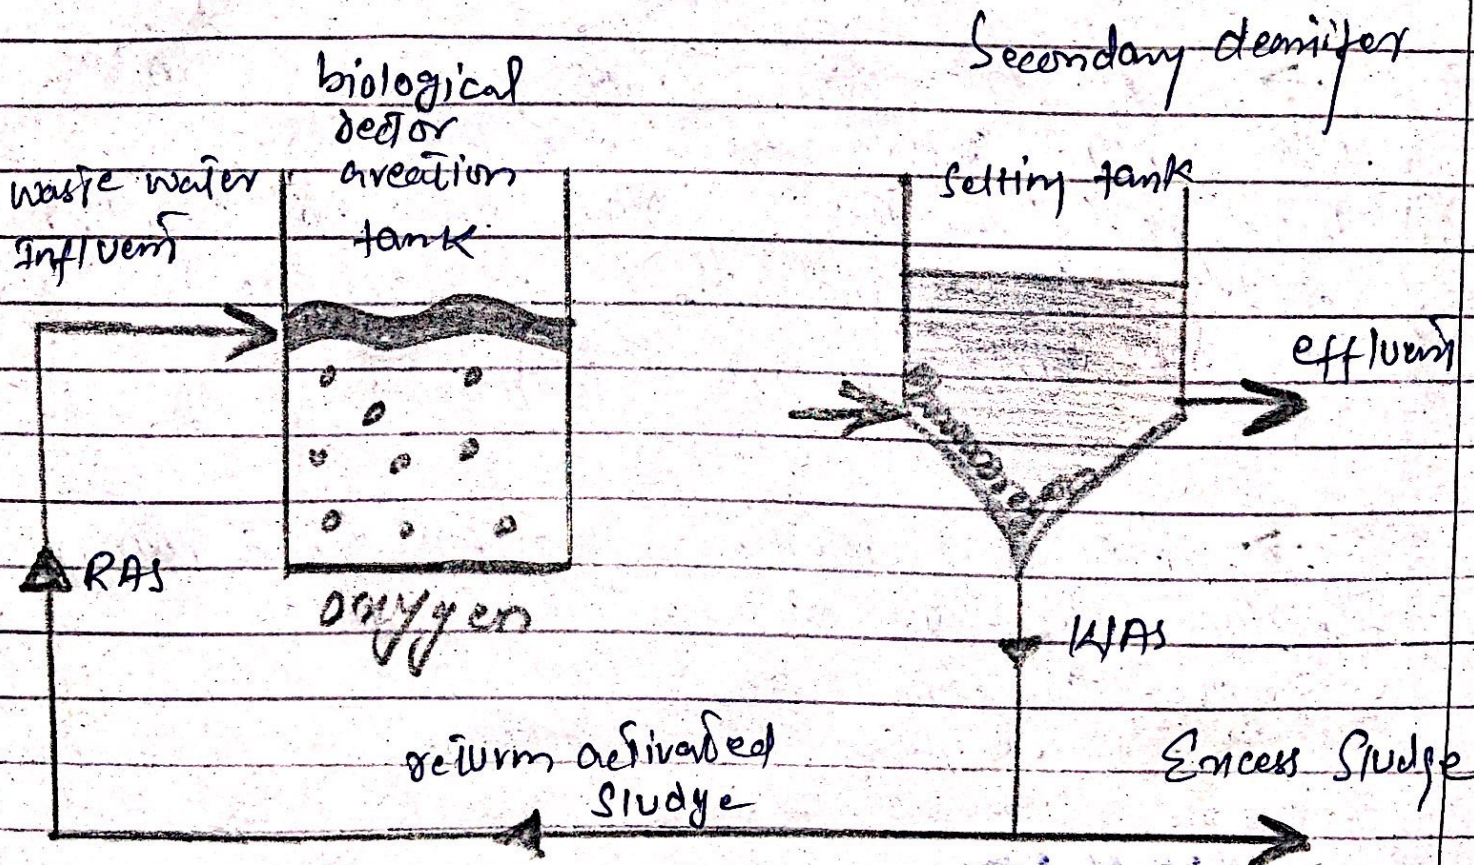 Secondary
biological
areation
tank
waste water
Influent
Setting tank
effluent
RAS
oxygen
WAS
return activated
Sludge
Excess Sludge